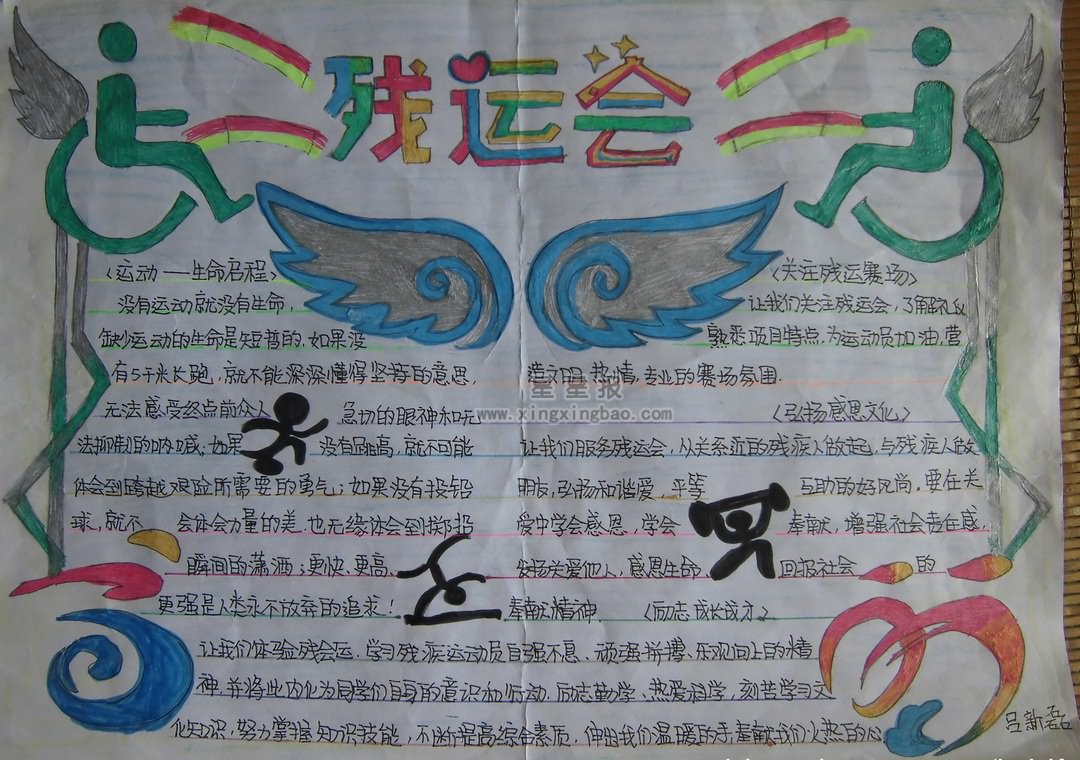 残运会
〈运动——生命启程〉
没有运动就没有生命，
缺少运动的生命是短暂的，如果没
有5千米长跑，就不能深深懂得坚等的意思，
无法感受终点前众人 急切的眼神和无
法抑制的呐喊；如果 没有跳高，就不可能
体会到跨越艰险所需要的勇气；如果没有投铅
球，就不 会体会力量的差，也无缘体会到掷投
瞬间的潇洒；更快、更高、
更强是人类永不放弃的追求！
〈关注残运赛场〉
让我们关注残运会，了解礼仪
熟悉项目特点，为运动员加油，营
造文明、热情，专业的赛场氛围．
〈弘扬感恩文化〉
让我们服务残运会，从关系近的残疾人做起，与残疾人做
朋友，弘扬和谐爱 平等 互助的好风尚，要在关
爱中学会感恩，学会 奉献，增强社会责任感，
发扬关爱他人，感恩生命、 回报社会 的
奉献精神．
〈励志成长成才〉
让我们体验残会运，学习残疾运动员自强不息、顽强拼搏、乐观向上的精
神，并将此内化为同学们自身的意识和行动，励志勤学、热爱科学，刻苦学习文
化知识，努力掌握知识技能，不断提高综合素质，伸出我们温暖的手奉献我们火热的心
吕新磊
星星报
www.xingxingbao.com